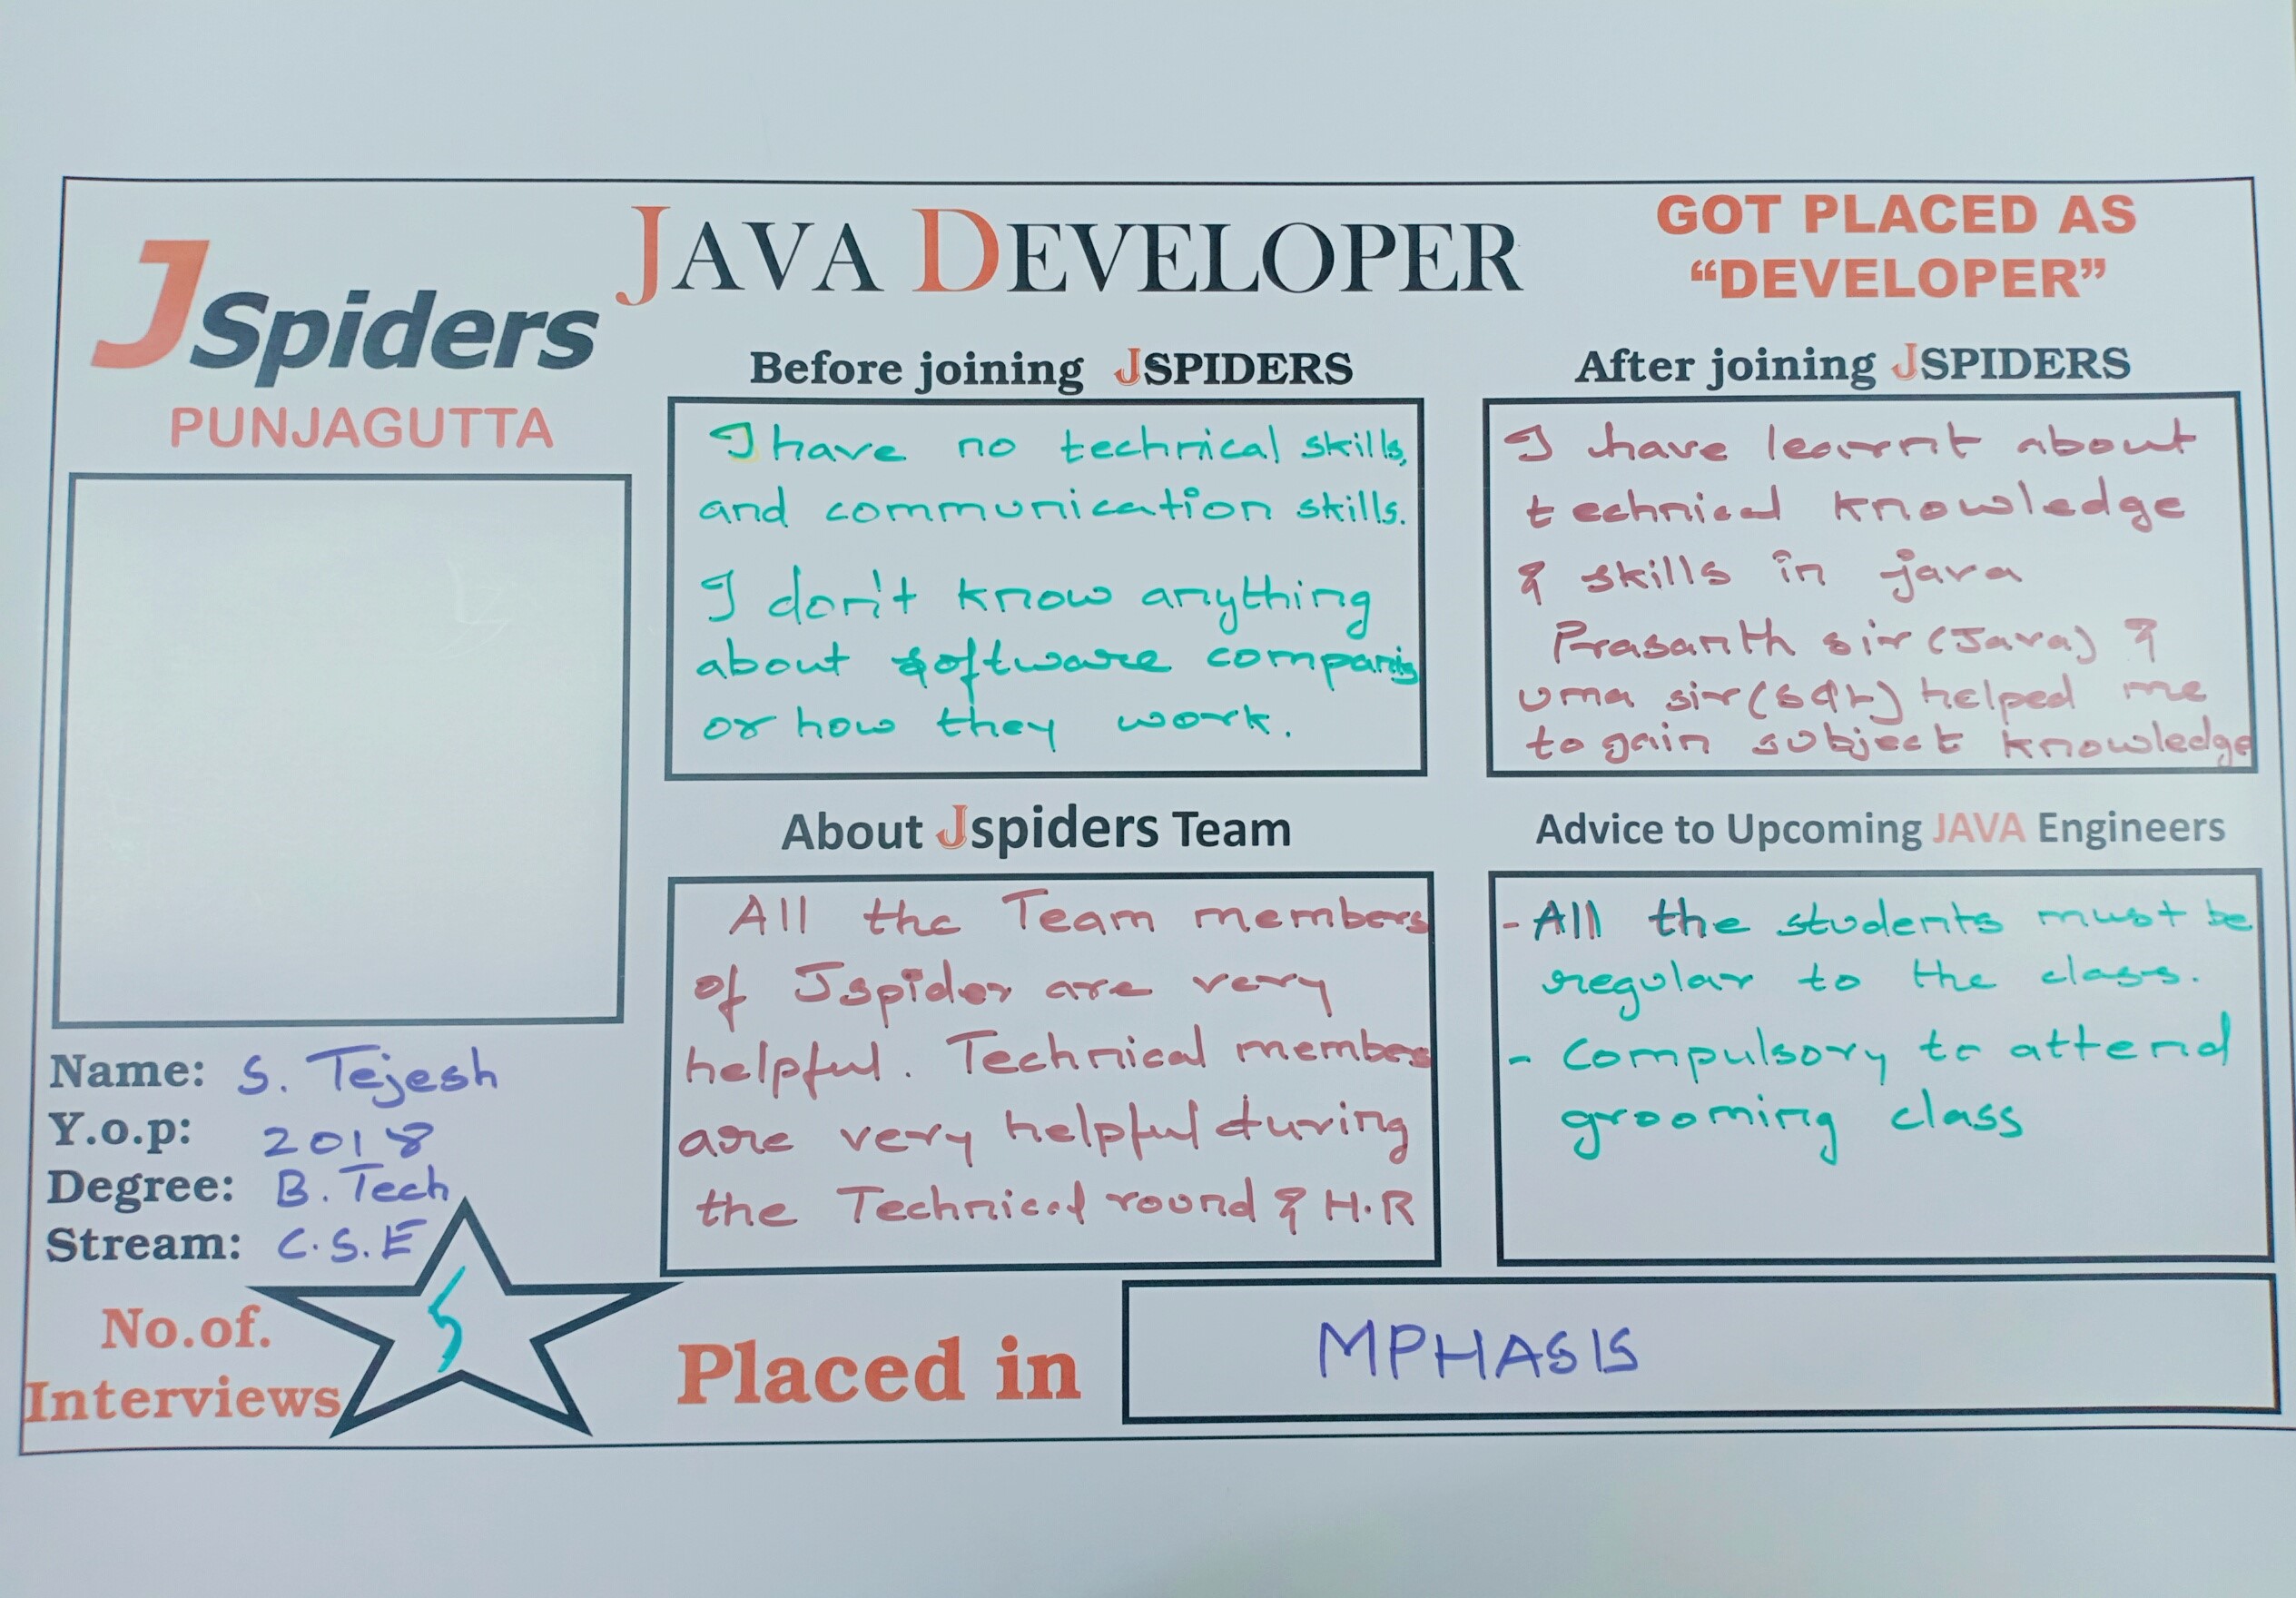 JAVA DEVELOPER
GOT PLACED AS
“DEVELOPER”
JSpiders
PUNJAGUTTA
Before joining JSPIDERS
I have no technical skills,
and communication skills.
I don't know anything
about software companis
or how they work.
After joining JSPIDERS
I have learnt about
technical knowledge
& skills in java
Prasanth sir (Java) &
uma sir (SQL) helped me
to gain subject knowledge
About Jspiders Team
All the Team members
of Jspider are very
helpful. Technical members
are very helpful during
the Technical round & H.R
Advice to Upcoming JAVA Engineers
- All the students must be
regular to the class.
- Compulsory to attend
grooming class
Name: S. Tejesh
Y.o.p: 2018
Degree: B.Tech
Stream: C.S.E
No.of.
Interviews
5
Placed in
MPHASIS